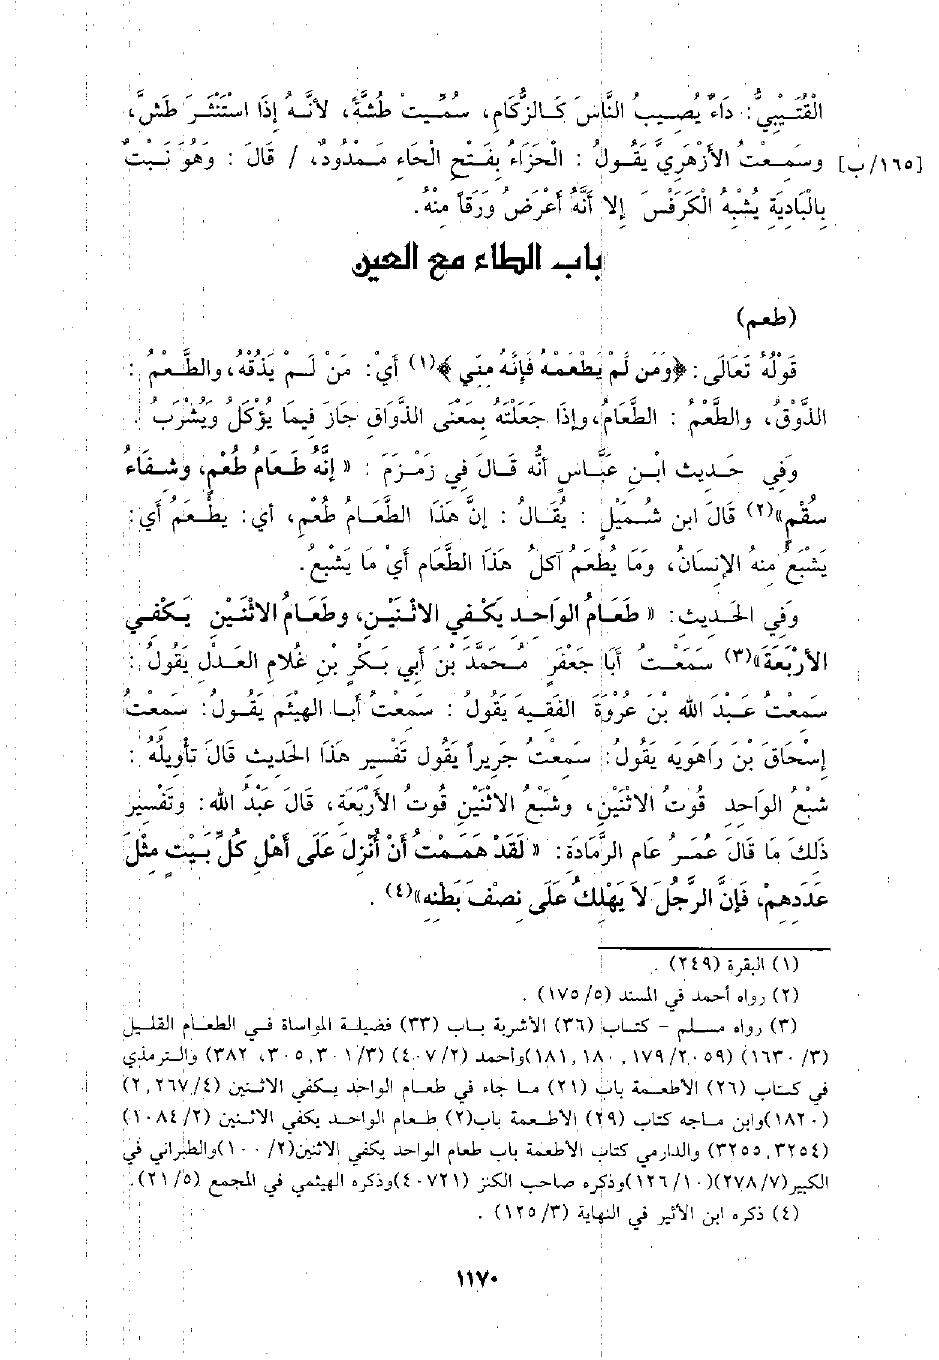 القُتَيْبِيُّ: دَاءٌ يُصِيبُ النَّاسَ كَالزُّكَامِ، سُمِّيَتْ طُشَّةً، لأنَّهُ إذَا اسْتَنْثَرَ طَشَّ،
[١٦٥/ب] وسَمِعْتُ الأزْهَرِيَّ يَقُولُ: الْحَزَاءُ بِفَتْحِ الْحَاءِ مَمْدُودٌ، / قَالَ: وَهُوَ نَبْتٌ
بِالْبَادِيَةِ يُشْبِهُ الْكَرَفْسَ إِلا أَنَّهُ أَعْرَضُ وَرَقاً مِنْهُ.
باب الطاء مع العين
(طعم)
قَوْلُهُ تَعَالَى: ﴿وَمَن لَّمْ يَطْعَمْهُ فَإِنَّهُ مِنِّي﴾(١) أَيْ: مَنْ لَمْ يَذُقْهُ، والطَّعْمُ:
الذَّوْقُ، والطَّعْمُ: الطَّعَامُ، وإذَا جَعَلْتَهُ بِمَعْنَى الذَّوَاقِ جَازَ فِيمَا يُؤْكَلُ ويُشْرَبُ.
وَفِي حَدِيثِ ابْنِ عَبَّاسٍ أنَّهُ قَالَ فِي زَمْزَمَ: «إِنَّهُ طَعَامُ طُعْمٍ، وشِفَاءُ
سُقْمٍ»(٢) قَالَ ابن شُمَيْلٍ: يُقَالُ: إنَّ هَذَا الطَّعَامَ طُعْمٌ، أي: يَطْعَمُ أَي:
يَشْبَعُ مِنْهُ الإنْسَانُ، وَمَا يُطْعَم آكلُ هَذَا الطَّعَامِ أيْ مَا يَشْبَعُ.
وَفِي الْحَدِيثِ: «طَعَامُ الوَاحِدِ يَكْفِي الاثْنَيْنِ، وطَعَامُ الاثْنَيْنِ يَكْفِي
الأرْبَعَةَ»(٣) سَمِعْتُ أَبَا جَعْفَرٍ مُحَمَّدَ بْنَ أَبِي بَكْرِ بْنِ غُلامٍ العَدْلَ يَقُولُ:
سَمِعْتُ عَبْدَ اللهِ بْنَ عُرْوَةَ الفَقِيهَ يَقُولُ: سَمِعْتُ أَبَا الهيْثَمِ يَقُولُ: سَمِعْتُ
إسْحَاقَ بْنَ رَاهَوَيْهِ يَقُولُ: سَمِعْتُ جَرِيراً يَقُولُ تَفْسِيرَ هَذَا الحَدِيثِ قَالَ تَأْوِيلُهُ:
شِبْعُ الوَاحِدِ قُوتُ الاثْنَيْنِ، وشِبْعُ الاثْنَيْنِ قُوتُ الأَرْبَعَةِ، قَالَ عَبْدُ اللهِ: وتَفْسِيرُ
ذَلِكَ مَا قَالَ عُمَرُ عَامَ الرَّمَادَةِ: «لَقَدْ هَمَمْتُ أَنْ أُنْزِلَ عَلَى أَهْلِ كُلِّ بَيْتٍ مِثْلَ
عَدَدِهِمْ، فَإِنَّ الرَّجُلَ لاَ يَهْلِكُ عَلَى نِصْفِ بَطْنِهِ»(٤).
(١) البقرة (٢٤٩).
(٢) رواه أحمد في المسند (١٧٥/٥).
(٣) رواه مسلم - كتاب (٣٦) الأشربة باب (٣٣) فضيلة المواساة في الطعام القليل
(٣/ ١٦٣٠) (١٧٩/٢٠٥٩, ١٨٠, ١٨١) وأحمد (٤٠٧/٢) (٣٠١/٣, ٣٠٥, ٣٨٢) والترمذي
في كتاب (٢٦) الأطعمة باب (٢١) ما جاء في طعام الواحد يكفي الاثنين (٢٦٧/٤, ٢)
(١٨٢٠) وابن ماجه كتاب (٢٩) الأطعمة باب (٢) طعام الواحد يكفي الاثنين (١٠٨٤/٢)
(٣٢٥٤, ٣٢٥٥) والدارمي كتاب الأطعمة باب طعام الواحد يكفي الاثنين (١٠٠/٢) والطبراني في
الكبير (٢٧٨/٧) (١٢٦/١٠) وذكره صاحب الكنز (٤٠٧٢١) وذكره الهيثمي في المجمع (٢١/٥).
(٤) ذكره ابن الأثير في النهاية (١٢٥/٣).
١١٧٠